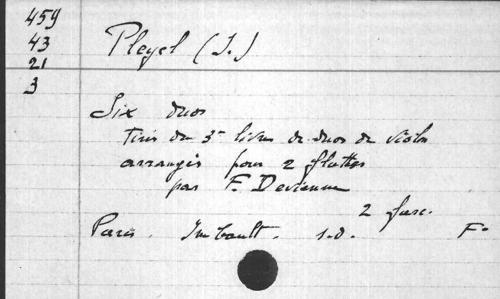 459
43
21
3
Pleyel (I.)
Six duos
tirés du 3e livre de duos de violon
arrangés pour 2 fluttes
par F. Devienne
2 fasc.
Paris. Imbault. s.d. Fo